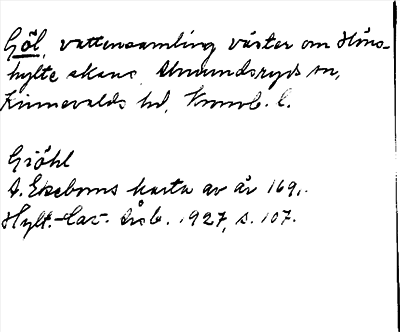 Göl, vattensamling väster om Höns-
hylte skans, Almundsryds sn,
Kinnevalds hd, Kronob. l.
Giöhl
A. Ekeboms karta av år 169.
Hylt.-Cav. årsb. 1927, s. 107.